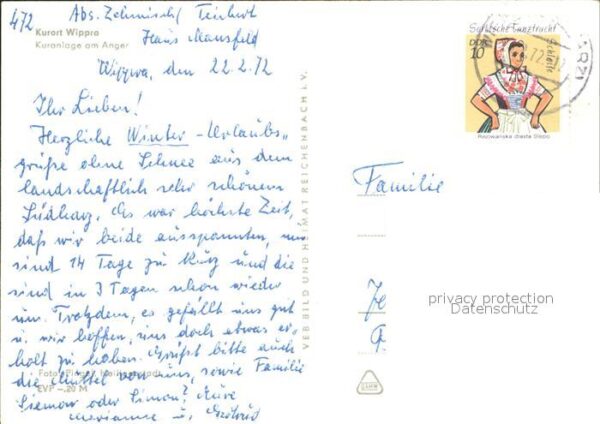 472
Abs. Zehmisch/Teichert
Haus Mansfeld
Kurort Wippra
Kuranlage am Anger
Wippra, den 22.2.72
Ihr Lieben!
Herzliche Winter-Urlaubs-
grüße ohne Schnee aus dem
landschaftlich sehr schönem
Südharz. Es war höchste Zeit,
daß wir beide ausspannten, nun
sind 14 Tage zu kurz und die
sind in 3 Tagen schon wieder
um. Trotzdem, es gefällt uns gut
u. wir hoffen, uns doch etwas er-
holt zu haben. Grüßt bitte auch
die Muttel von uns, sowie Familie
Siemow oder Simon? Eure
Marianne u.
Foto:
EVP -,20 M
VEB BILD UND HEIMAT REICHENBACH i. V.
Sorbische Tanztracht
Schleife
DDR
10
Rejowanska drasta Slepo
Familie
privacy protection
Datenschutz